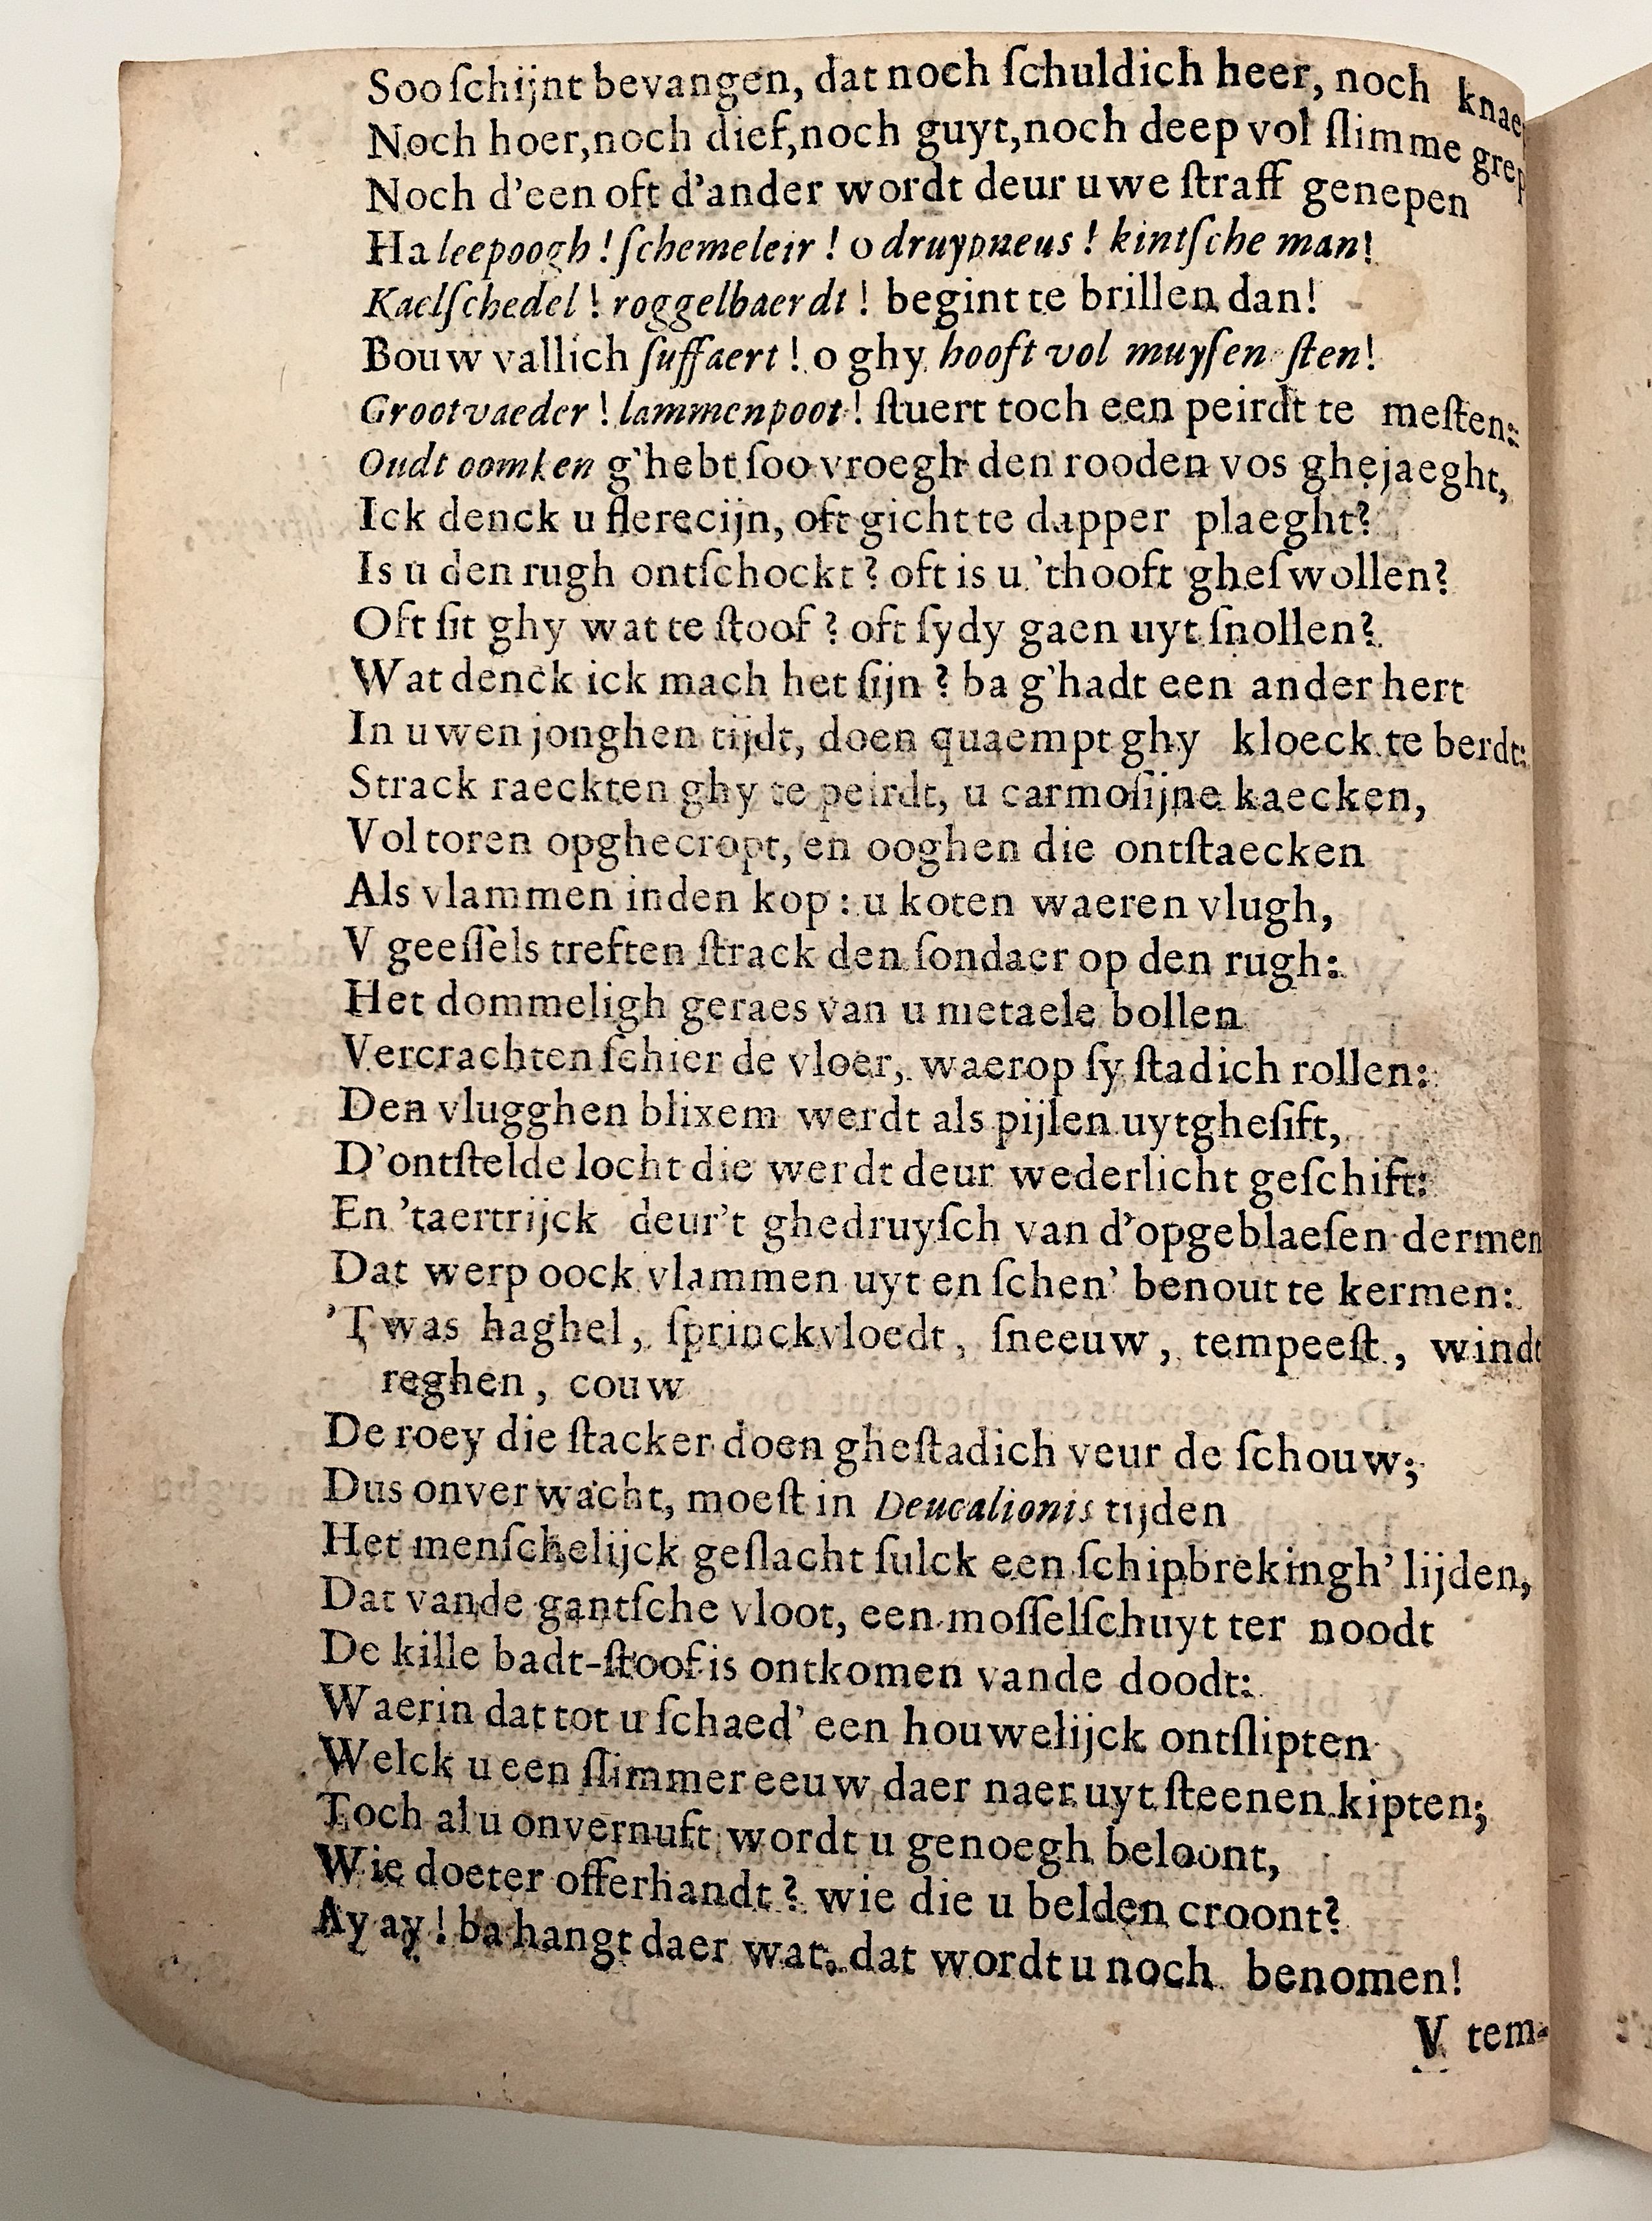 Soo ſchijnt bevangen, dat noch ſchuldich heer, noch knae
Noch hoer, noch dief, noch guyt, noch deep vol ſlimme grep
Noch d'een oft d'ander wordt deur uwe ſtraff genepen
Ha leepoogh ! ſchemeleir ! o druypneus ! kintſche man!
Kaelſchedel ! roggelbaerdt ! begint te brillen dan!
Bouwvallich ſuffaert ! o ghy hooft vol muyſen ſten!
Grootvaeder ! lammenpoot ! ſtuert toch een peirdt te meſten:
Oudt oomken g'hebt ſoo vroegh den rooden vos ghejaeght,
Ick denck u flerecijn, oft gicht te dapper plaeght?
Is u den rugh ontſchockt ? oft is u 'thooft gheſwollen?
Oft ſit ghy wat te ſtoof ? oft ſydy gaen uyt ſnollen?
Wat denck ick mach het ſijn ? ba g'hadt een ander hert
In uwen jonghen tijdt, doen quaempt ghy kloeck te berdt:
Strack raeckten ghy te peirdt, u carmoſijne kaecken,
Vol toren opghecropt, en ooghen die ontſtaecken
Als vlammen inden kop : u koten waeren vlugh,
V geeſſels treften ſtrack den ſondaer op den rugh:
Het dommeligh geraes van u metaele bollen
Vercrachten ſchier de vloer, waerop ſy ſtadich rollen:
Den vlugghen blixem werdt als pijlen uytgheſift,
D'ontſtelde locht die werdt deur wederlicht geſchift:
En 'taertrijck deur't ghedruyſch van d'opgeblaeſen dermen
Dat werp oock vlammen uyt en ſchen' benout te kermen:
'T was haghel, ſprinckvloedt, ſneeuw, tempeeſt, windt
reghen, couw
De roey die ſtacker doen gheſtadich veur de ſchouw;
Dus onverwacht, moeſt in Deucalionis tijden
Het menſchelijck geſlacht ſulck een ſchipbrekingh' lijden,
Dat vande gantſche vloot, een moſſelſchuyt ter noodt
De kille badt-ſtoof is ontkomen vande doodt:
Waerin dat tot u ſchaed' een houwelijck ontſlipten
Welck u een ſlimmer eeuw daer naer uyt ſteenen kipten;
Toch al u onvernuft wordt u genoegh beloont,
Wie doeter offerhandt ? wie die u belden croont?
Ay ay ! ba hangt daer wat. dat wordt u noch benomen!
V tem-